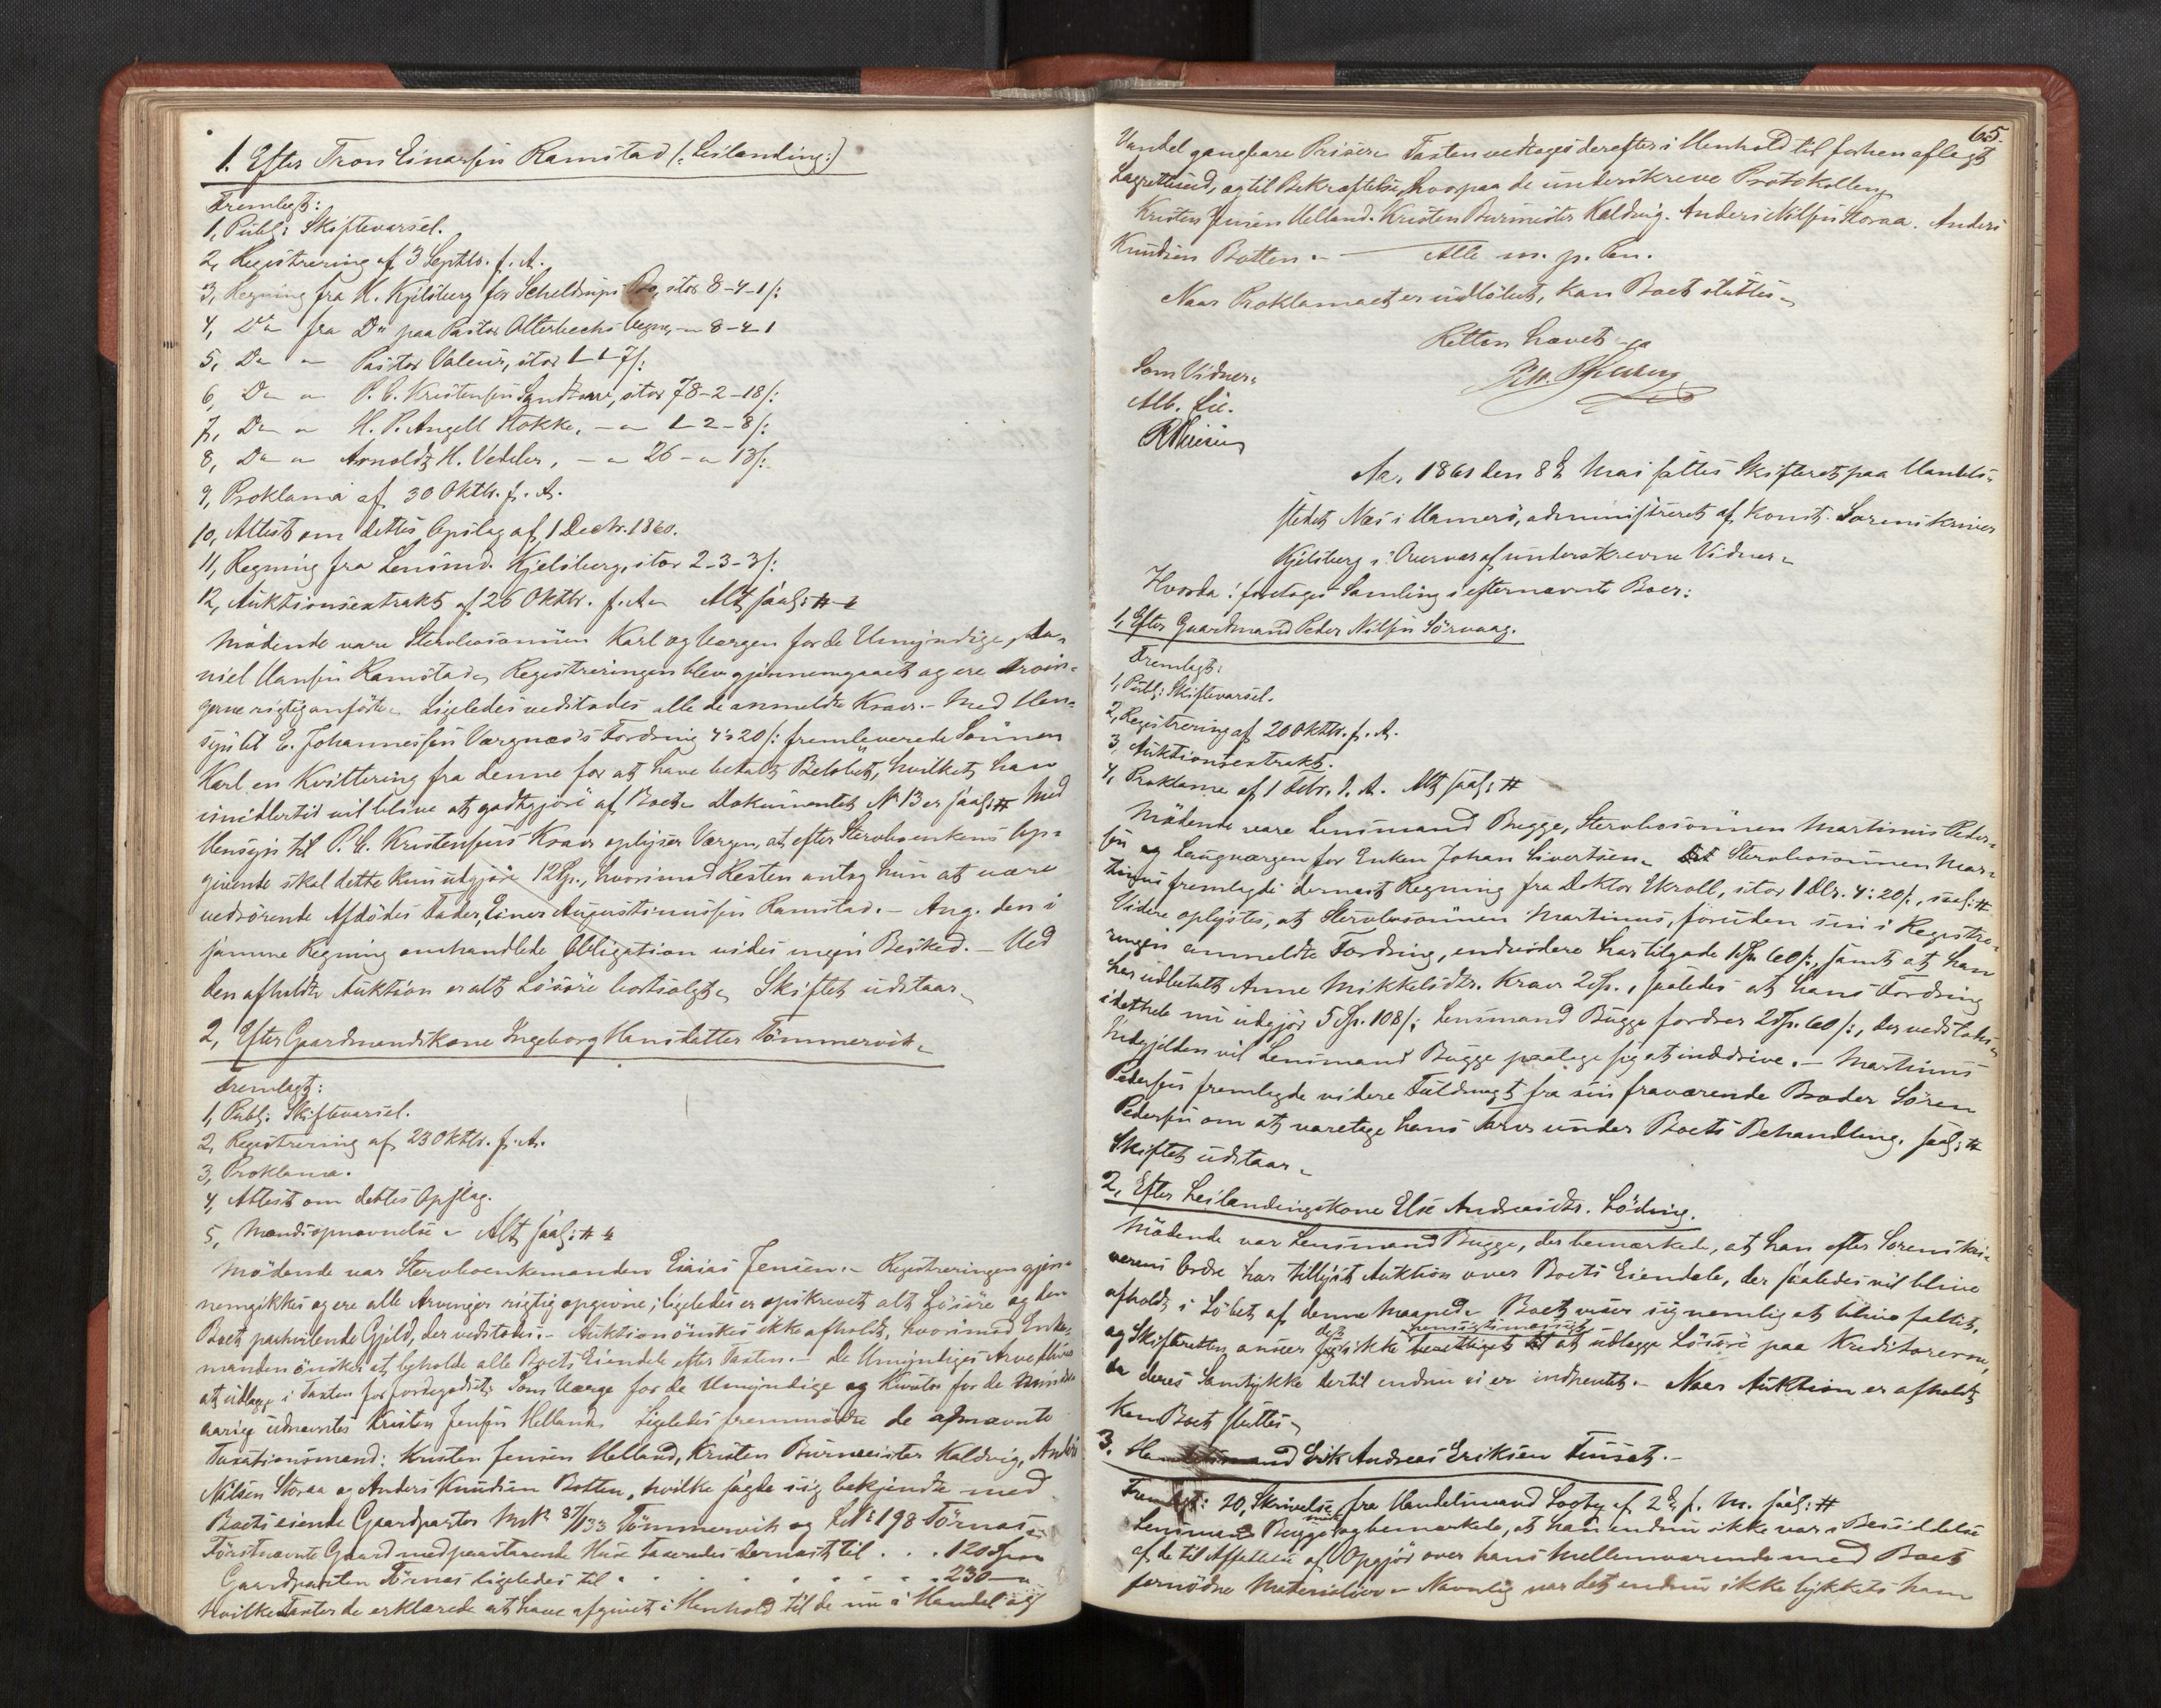 1. Efter Tron Einarsen Ramstad (: Leilænding :)
Fremlagt:
1, Publ: Skiftevarsel.
2, Registrering af 3 Septbr. f. A.
3, Regning fra H. Kjelsberg for Scheldrups Bo, stor 8-4-1 s:
4, Do fra Do paa Pastor Alterbechs Vegne, " 8-4-1
5, Do " Pastor Valeur, stor 1-1-7 s:
6, Do " P. C. Kristensen Sandtorv, stor 78-2-18 s:
7, Do " H. P. Angell Stokke, - " 1-2-8 s:
8, Do " Arnoldt H. Vedeler, - " 26 - " 13 s:
9, Proklama af 30 Oktbr. f. A.
10, Attest om dettes Opslag af 1 Decbr. 1860.
11, Regning fra Lensmd. Kjelsberg, stor 2-3-3 s:
12, Auktionsextrakt af 26 Oktbr. f. A. Alt saal: #
Mødende vare Stervbosønnen Karl og Værgen for de Umyndige, Da-
niel Hansen Ramstad. Registreringen blev gjennemgaaet og ere Arvin-
gerne rigtig anførte. Ligeledes vedtodes alle de anmeldte Krav. - Med Hen-
syn til E. Johannessen Værgnæs's Fordring 4 s 20 s: fremleverede Sønnen
Karl en Kvittering fra denne for at have betalt Beløbet, hvilket han
imidlertid vil blive at godtgjøre af Boet. Dokumentet No 13 er saal: # Med
Hensyn til P. C. Kristensens Krav oplyser Værgen, at efter Stervboenkens Op-
givende skal dette kun udgjøre 12 Sp., hvorimod Resten antog hun at være
vedrørende Afdødes Fader, Einer Augustinussen Ramstad. - Ang. den i
samme Regning omhandlede Obligation vides ingen Besked. - Ved
den afholdte Auktion er alt Løsøre bortsolgt. Skiftet udstaar.
2, Efter Gaardmandskone Ingeborg Hansdatter Tømmervik.
Fremlagt:
1, Publ: Skiftevarsel.
2, Registrering af 23 Oktbr. f. A.
3, Proklama.
4, Attest om dettes Opslag.
5, Mændsopnævnelse. Alt saal: #
Mødende var Stervboenkemanden Esaias Jensen. - Registreringen gjen-
nemgikkes og ere alle Arvinger rigtig opgivne; ligeledes er opskrevet alt Løsøre og den
Boet paahvilende Gjeld, der vedtodes. - Auktion ønskes ikke afholdt, hvorimod Enke-
manden ønsker at beholde alle Boets Eiendele efter Taxten. - De Umyndiges Arv bliver
at udlægge i Taxten for Jordegodset. Som Værge for de Umyndige og Kurator for de Mindre-
aarige udnævntes Kristen Jensen Helland. Ligeledes fremmødte de opnævnte
Taxationsmænd: Kristen Jensen Helland, Kristen Burmeister Kaldvig, Anders
Nilsen Storaa og Anders Knudsen Botten, hvilke sagde sig bekjendte med
Boets eiende Gaardparter Mk No 87/133 Tømmervik og L No 198 Tørnæs.
Førstnævnte Gaard med paastaaende Huse taxeredes dernæst til . . . 120 Sp.
Gaardparten Tørnæs ligeledes til . . . . . . . . . 230 "
hvilke Taxter de erklærede at have afgivet i Henhold til de nu i Handel og
65.
Vandel gangbare Priser. Taxten vedtoges derefter i Henhold til forhen aflagt
Lagretteseed, og til Bekræftelse, hvorpaa de underskreve Protokollen.
Kristen Jensen Helland. Kristen Burmeister Kaldvig. Anders Nilsen Storaa. Anders
Knudsen Botten. - Alle m. p. Pen.
Naar Proklamaet er udløbet, kan Boet sluttes.
Retten hævet.
Som Vidner:
Alb. Lie.
Aar 1861 den 8de Mai sattes Skifteret paa Handels-
stedet Næs i Hamerø, administreret af konst. Sorenskriver
Kjelsberg i Overvær af underskrevne Vidner.
Hvorda: foretoges Samling i efternævnte Boer:
1, Efter Gaardmand Peder Nilsen Sørvaag.
Fremlagt:
1, Publ: Skiftevarsel.
2, Registrering af 20 Oktbr. f. A.
3, Auktionsextrakt.
4, Proklama af 1 Febr. d. A. Alt saal: #
Mødende vare Lensmand Bugge, Stervbosønnen Martinus Peder-
sen og Laugværgen for Enken Johan Sivertsen. Stervbosønnen Mar-
tinus fremlagde dernæst Regning fra Doktor Ekroll, stor 1 Dlr. 4: 20 s., saal: #
Videre oplystes, at Stervbosønnen Martinus, foruden sin i Registre-
ringen anmeldte Fordring, endvidere har tilgode 1 Sp. 60 s., samt at han
har udbetalt Anne Mikkelsdtr. Krav 2 Sp., saaledes at hans Fordring
i dethele nu udgjør 5 Sp. 108 s; Lensmand Bugge fordrer 2 Sp. 60 s:, der vedtodes.
Udegjelden vil Lensmand Bugge paatage sig at inddrive. - Martinus
Pedersen fremlagde videre Fuldmagt fra sin fraværende Broder Søren
Pedersen om at varetage hans Tarv under Boets Behandling. saal: #
Skiftet udstaar.
2, Efter Leilændingskone Else Andreasdtr. Løding.
Mødende var Lensmand Bugge, der bemærkede, at han efter Sorenskri-
verens Ordre har tillyst Auktion over Boets Eiendele, der saaledes vil blive
afholdt i Løbet af denne Maaned. Boet viser sig nemlig at blive fallit,
og Skifteretten anseer det ikke hensigtsmæssigt at udlægge Løsøre paa Kreditorerne,
da deres Samtykke dertil endnu ei er indhentet. - Naar Auktion er afholdt
kan Boet sluttes.
3. Erik Andreas Eriksen Finsæt. -
Fremlagt: 20, Skrivelse fra Handelsmand Sooty af 2de f. M. saal: #
Lensmand Bugge mødte og bemærkede, at han endnu ikke var i Besiddelse
af de til Affattelse af Opgjør over hans Mellemværende med Boet
fornødne Materialier. Navnlig var det endnu ikke lykkets ham